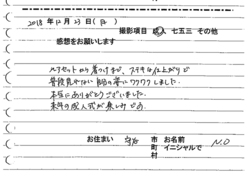 2018年12月23日(日)
撮影項目 成人 七五三 その他
感想をお願いします
ヘアセットから着つけまで、ステキな仕上がりで
普段見れない自分の姿にワクワクしました。
本当にありがとうございました。
来年の成人式が楽しみです。
お住まい 市 お名前
町 イニシャルで N.O
村